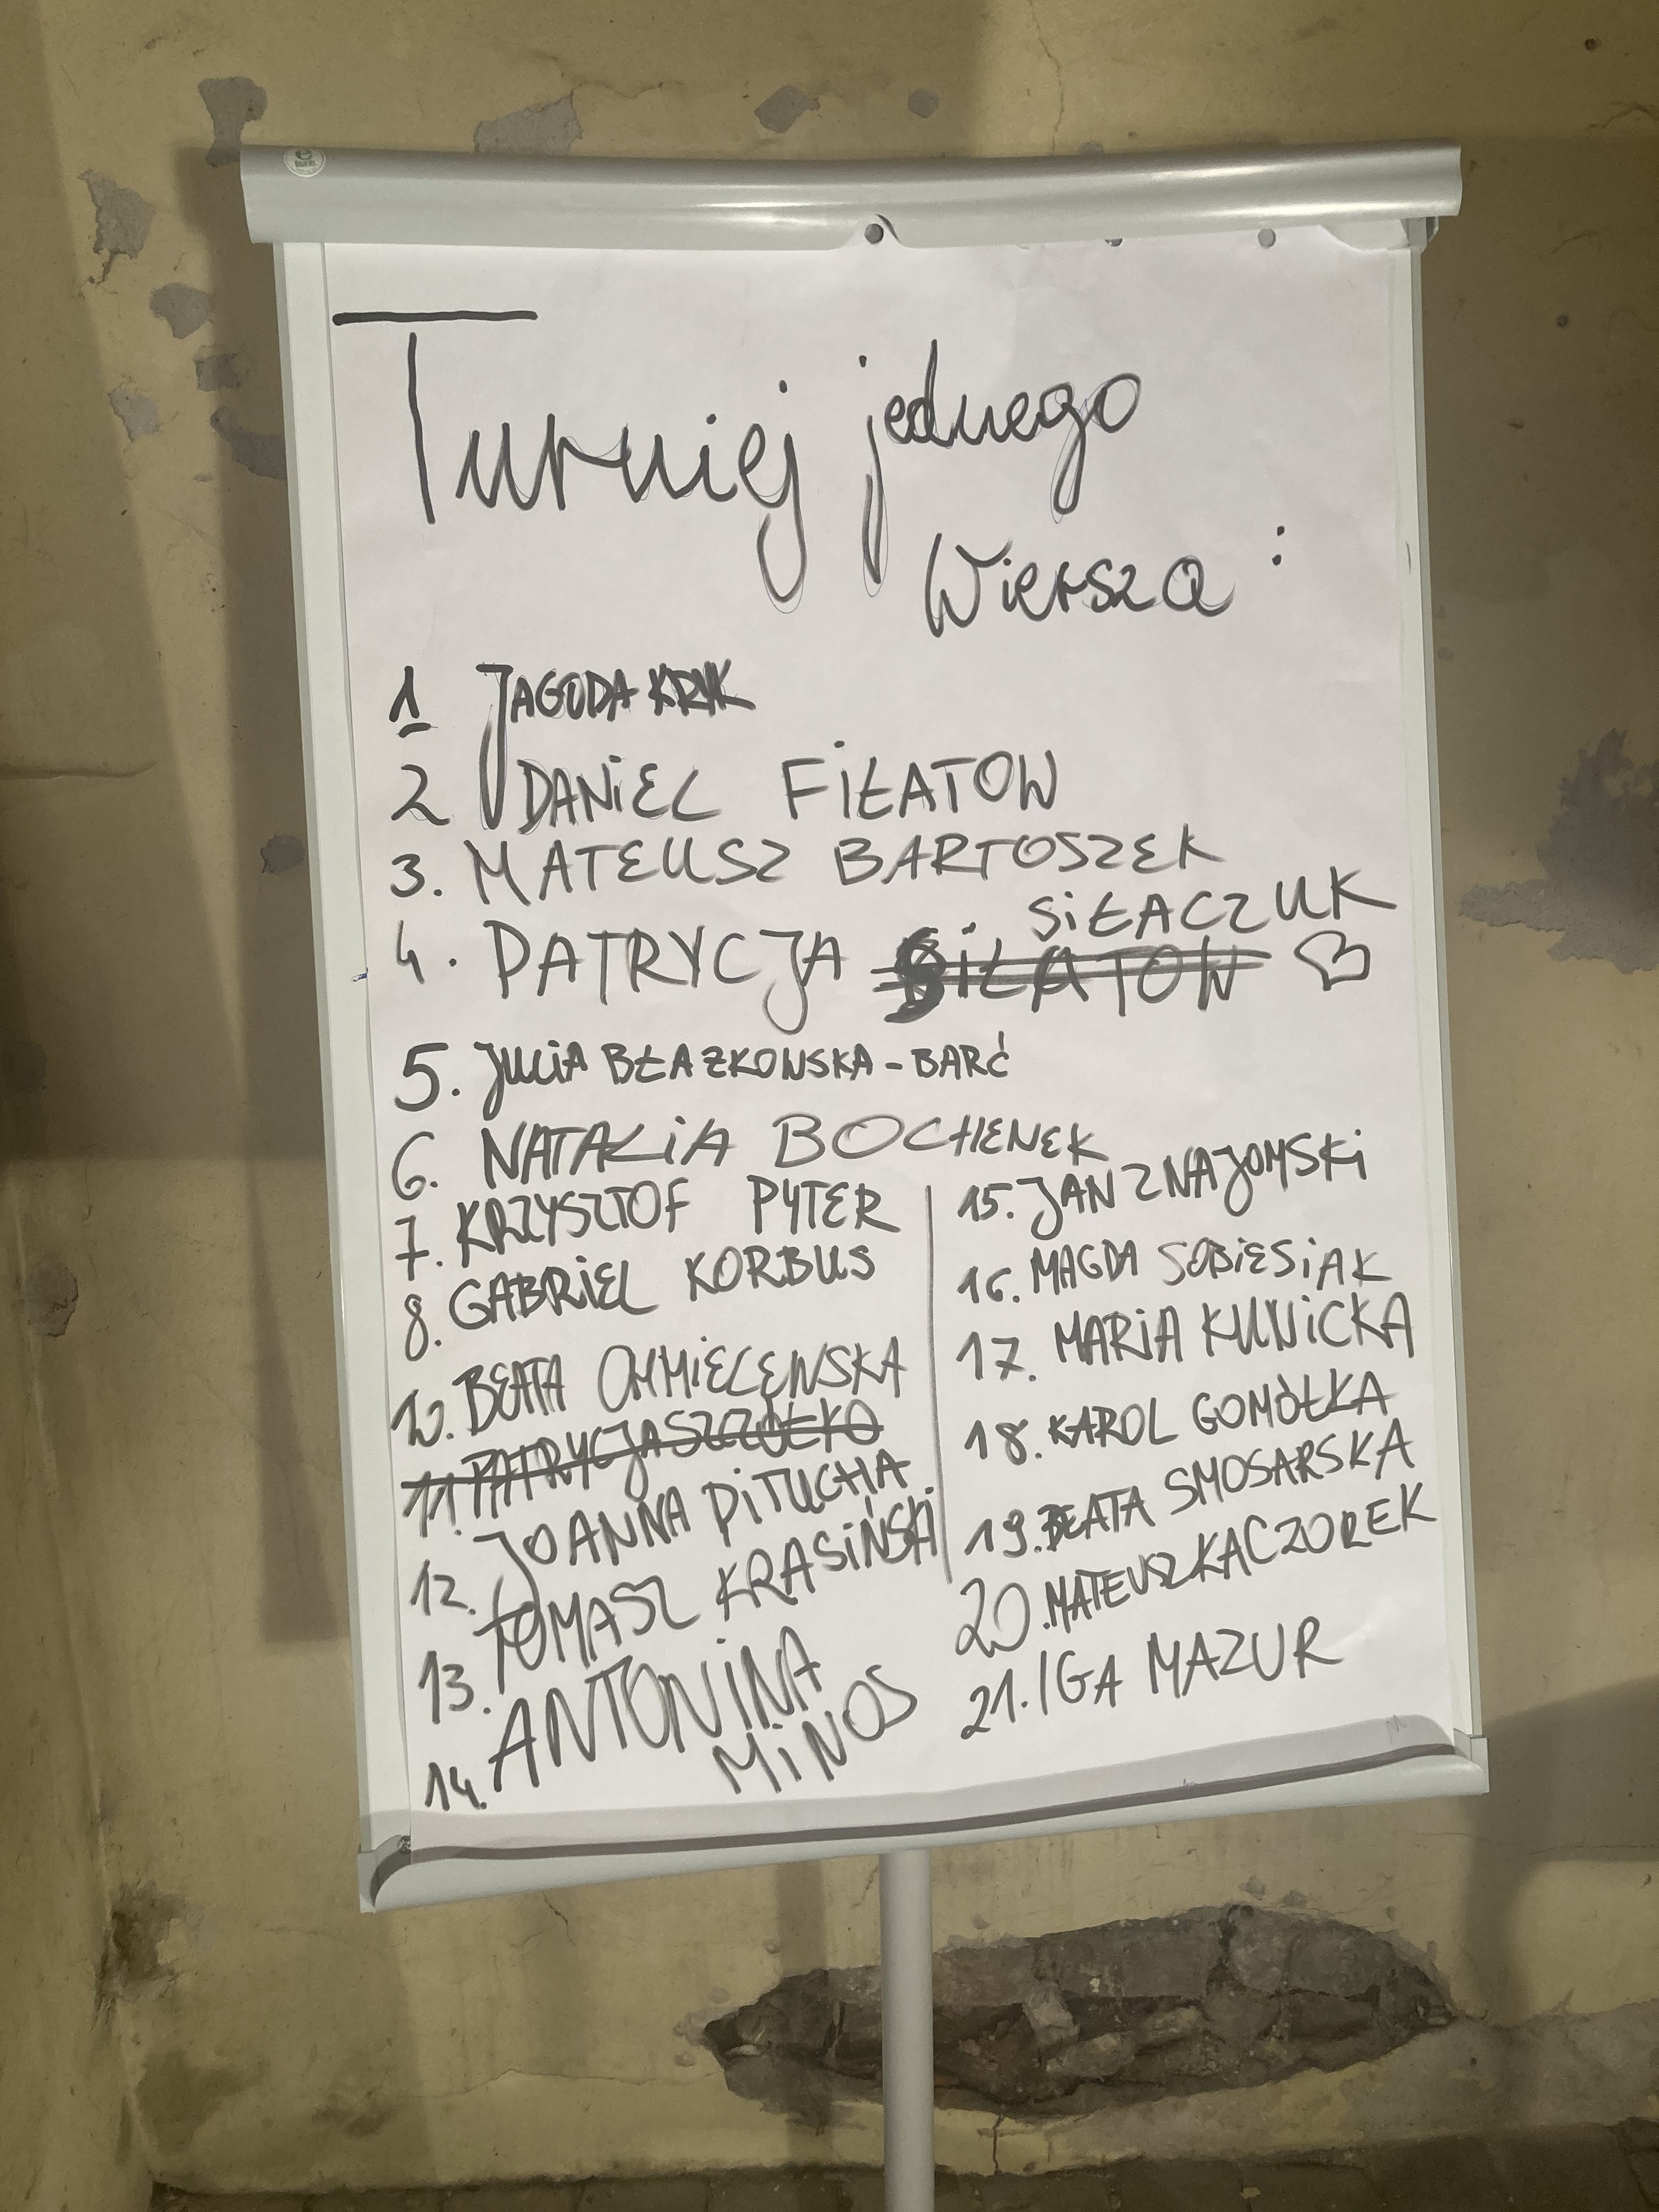 Turniej jednego
Wiersza :
1 JAGODA KRYK
2 DANIEL FIŁATOW
3. MATEUSZ BARTOSZEK
4. PATRYCJA SIŁATOW SIŁACZUK
5. JULIA BŁAŻKOWSKA-BARĆ
6. NATALIA BOCHENEK
7. KRZYSZTOF PYTER
8. GABRIEL KORBUS
10. BEATA CHMIELEWSKA
11. PATRYCJA SZCZÓŁKO
12. JOANNA PITUCHA
13. TOMASZ KRASIŃSKI
14. ANTONINA
MINOS
15. JAN ZNAJOMSKI
16. MAGDA SOBIESIAK
17. MARIA KUNICKA
18. KAROL GOMÓŁKA
19. BEATA SMOSARSKA
20. MATEUSZ KACZOREK
21. IGA MAZUR